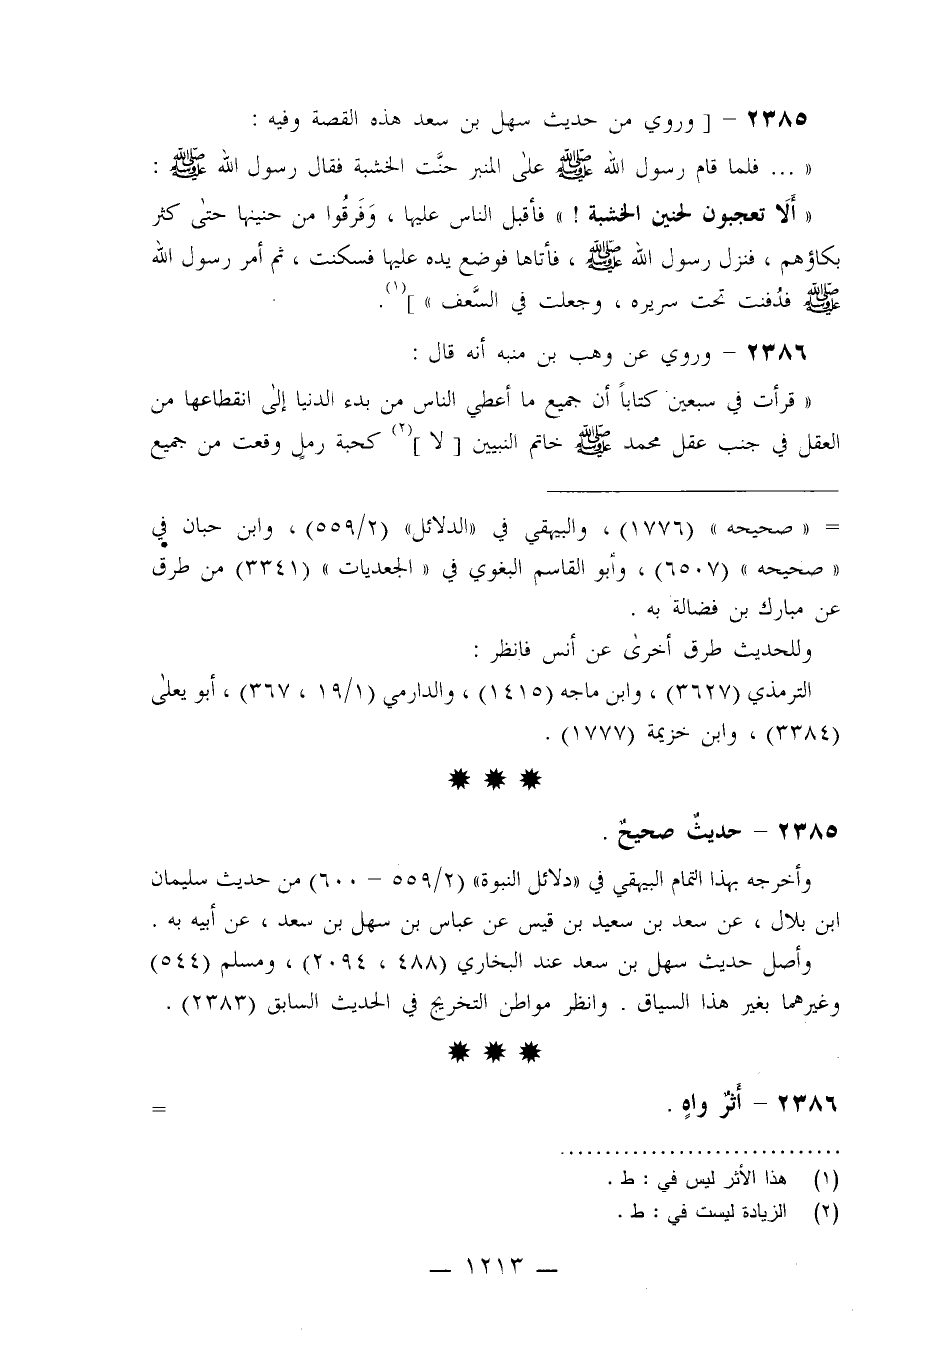 ٢٣٨٥ – [ وروي من حديث سهل بن سعد هذه القصة وفيه :
« ... فلما قام رسول الله ﷺ علىٰ المنبر حنَّت الخشبة فقال رسول الله ﷺ :
« أَلَا تعجبون لحنين الخشبة ! » فأقبل الناس عليها ، وَفَرقُوا من حنينها حتىٰ كثر
بكاؤهم ، فنزل رسول الله ﷺ ، فأتاها فوضع يده عليها فسكنت ، ثم أمر رسول الله
ﷺ فدُفنت تحت سريره ، وجعلت في السَّعف » ](١).
٢٣٨٦ – وروي عن وهب بن منبه أنه قال :
« قرأت في سبعين كتاباً أن جميع ما أعطي الناس من بدء الدنيا إلىٰ انقطاعها من
العقل في جنب عقل محمد ﷺ خاتم النبيين [ لا ](٢) كحبة رملٍ وقعت من جميع
= « صحيحه » (١٧٧٦) ، والبيهقي في «الدلائل» (٥٥٩/٢) ، وابن حبان في
« صحيحه » (٦٥٠٧) ، وأبو القاسم البغوي في « الجعديات » (٣٣٤١) من طرق
عن مبارك بن فضالة به .
وللحديث طرق أخرىٰ عن أنس فانظر :
الترمذي (٣٦٢٧) ، وابن ماجه (١٤١٥) ، والدارمي (١٩/١ ، ٣٦٧) ، أبو يعلىٰ
(٣٣٨٤) ، وابن خزيمة (١٧٧٧) .
٢٣٨٥ – حديثٌ صحيحٌ .
وأخرجه بهذا التمام البيهقي في «دلائل النبوة» (٥٥٩/٢ – ٦٠٠) من حديث سليمان
ابن بلال ، عن سعد بن سعيد بن قيس عن عباس بن سهل بن سعد ، عن أبيه به .
وأصل حديث سهل بن سعد عند البخاري (٤٨٨ ، ٢٠٩٤) ، ومسلم (٥٤٤)
وغيرهما بغير هذا السياق . وانظر مواطن التخريج في الحديث السابق (٢٣٨٣) .
٢٣٨٦ – أَثرٌ واهٍ . =
(١) هذا الأثر ليس في : ط .
(٢) الزيادة ليست في : ط .
— ١٢١٣ —